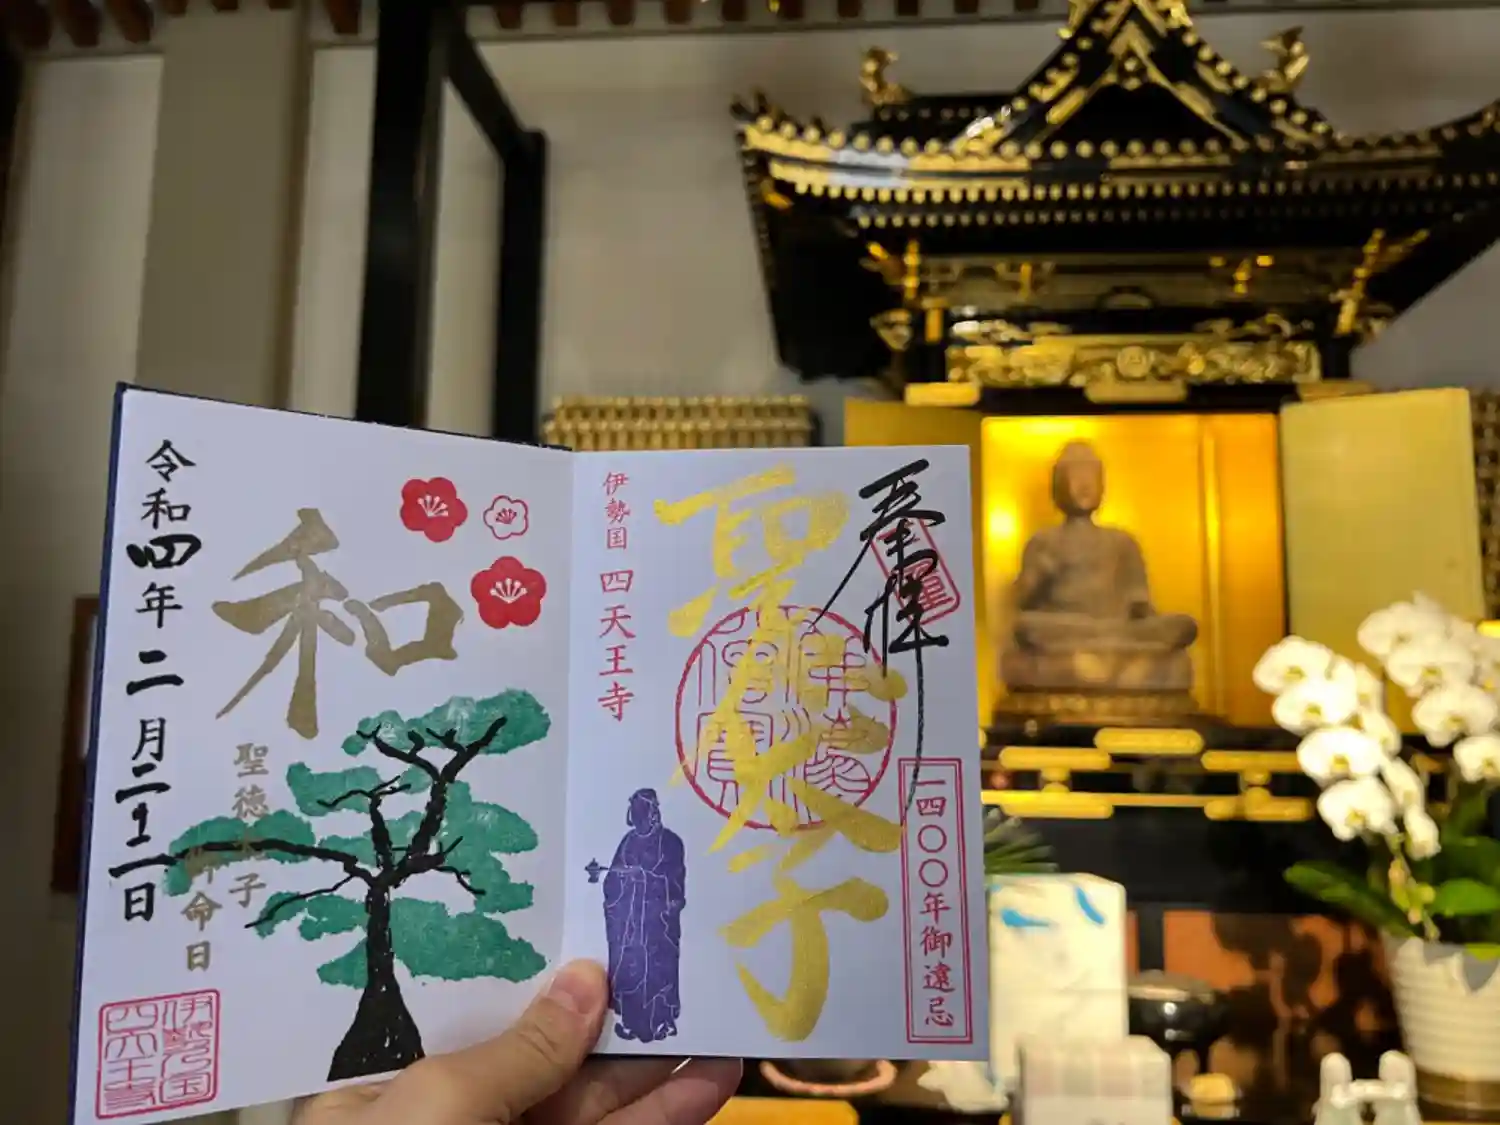 奉拝
聖太子
一四〇〇年御遠忌
伊勢国 四天王寺
和
聖徳太子
御命日
令和四年二月二十二日
伊勢国
四天王寺